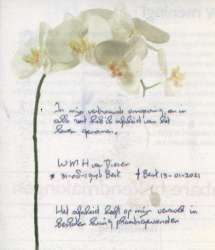 In mijn vertrouwde omgeving en in
alle rust heb ik afscheid van het
leven genomen.
W M H van
* 31 Best † Best 13-01-2021
Het afscheid heeft op mijn verzoek in
besloten kring plaatsgevonden